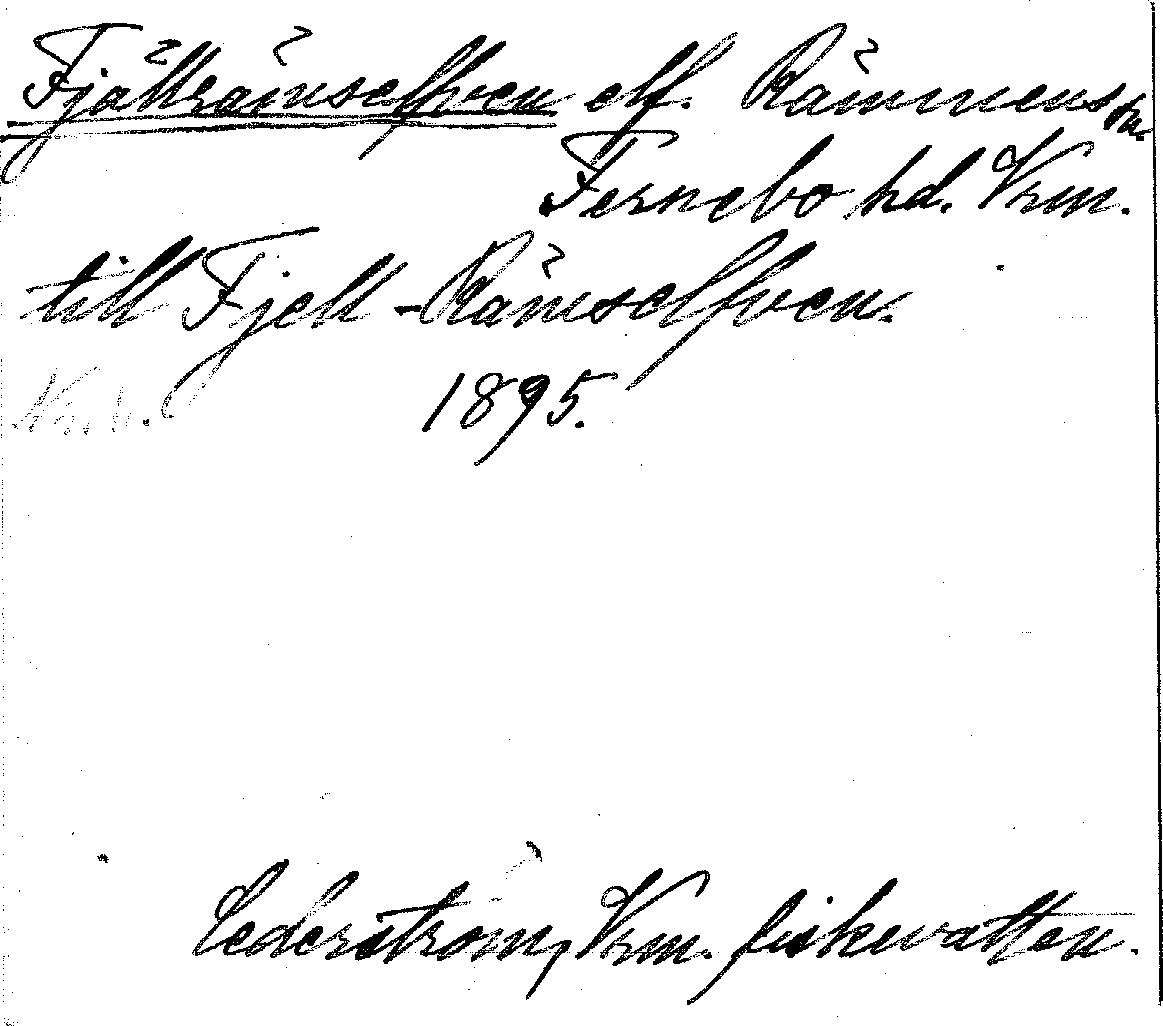 Fjällrämselfven elf. Rämmens sn.
Fernebo hd. Vrm.
till Fjell-Rämselfven.
1895.
Cederström, Vrm. fiskevatten.